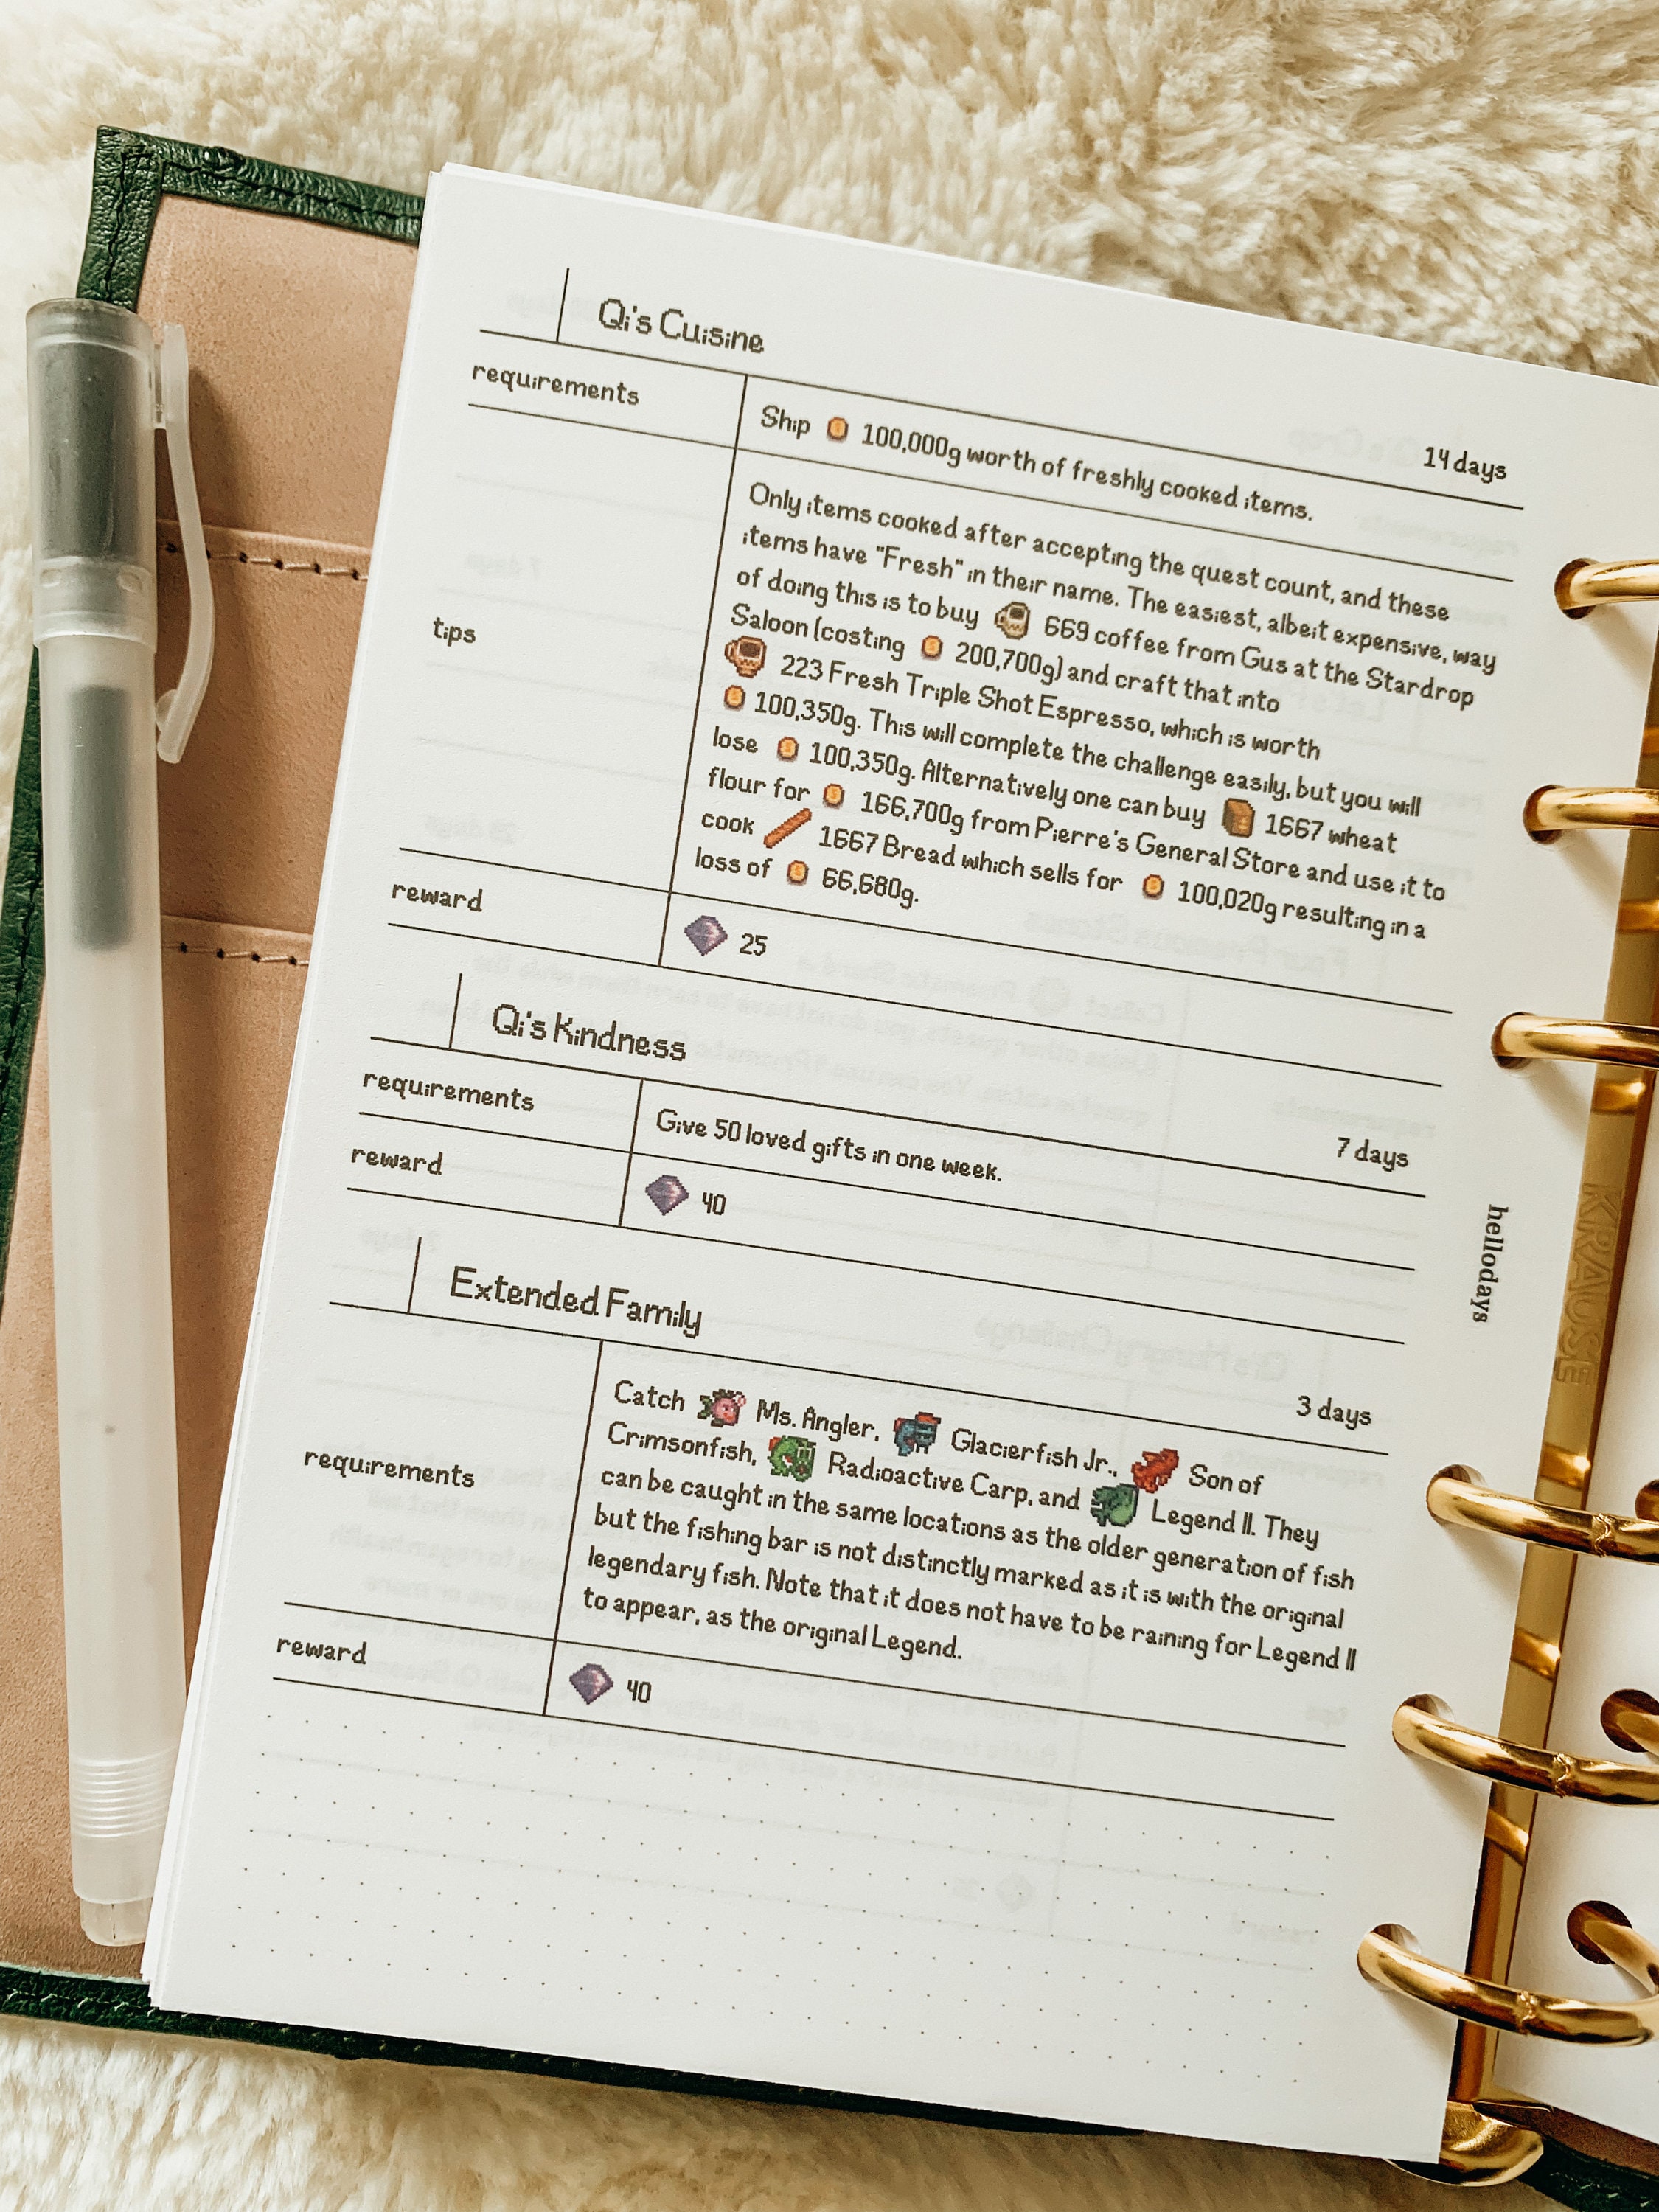 Qi's Cuisine
14 days
requirements
Ship 100,000g worth of freshly cooked items.
tips
Only items cooked after accepting the quest count, and these
items have "Fresh" in their name. The easiest, albeit expensive, way
of doing this is to buy 669 coffee from Gus at the Stardrop
Saloon (costing 200,700g) and craft that into
223 Fresh Triple Shot Espresso, which is worth
100,350g. This will complete the challenge easily, but you will
lose 100,350g. Alternatively one can buy 1667 wheat
flour for 166,700g from Pierre's General Store and use it to
cook 1667 Bread which sells for 100,020g resulting in a
loss of 66,680g.
reward
25
Qi's Kindness
7 days
requirements
Give 50 loved gifts in one week.
reward
40
Extended Family
3 days
requirements
Catch Ms. Angler, Glacierfish Jr., Son of
Crimsonfish, Radioactive Carp, and Legend II. They
can be caught in the same locations as the older generation of fish
but the fishing bar is not distinctly marked as it is with the original
legendary fish. Note that it does not have to be raining for Legend II
to appear, as the original Legend.
reward
40
hellodays
KRAUSE